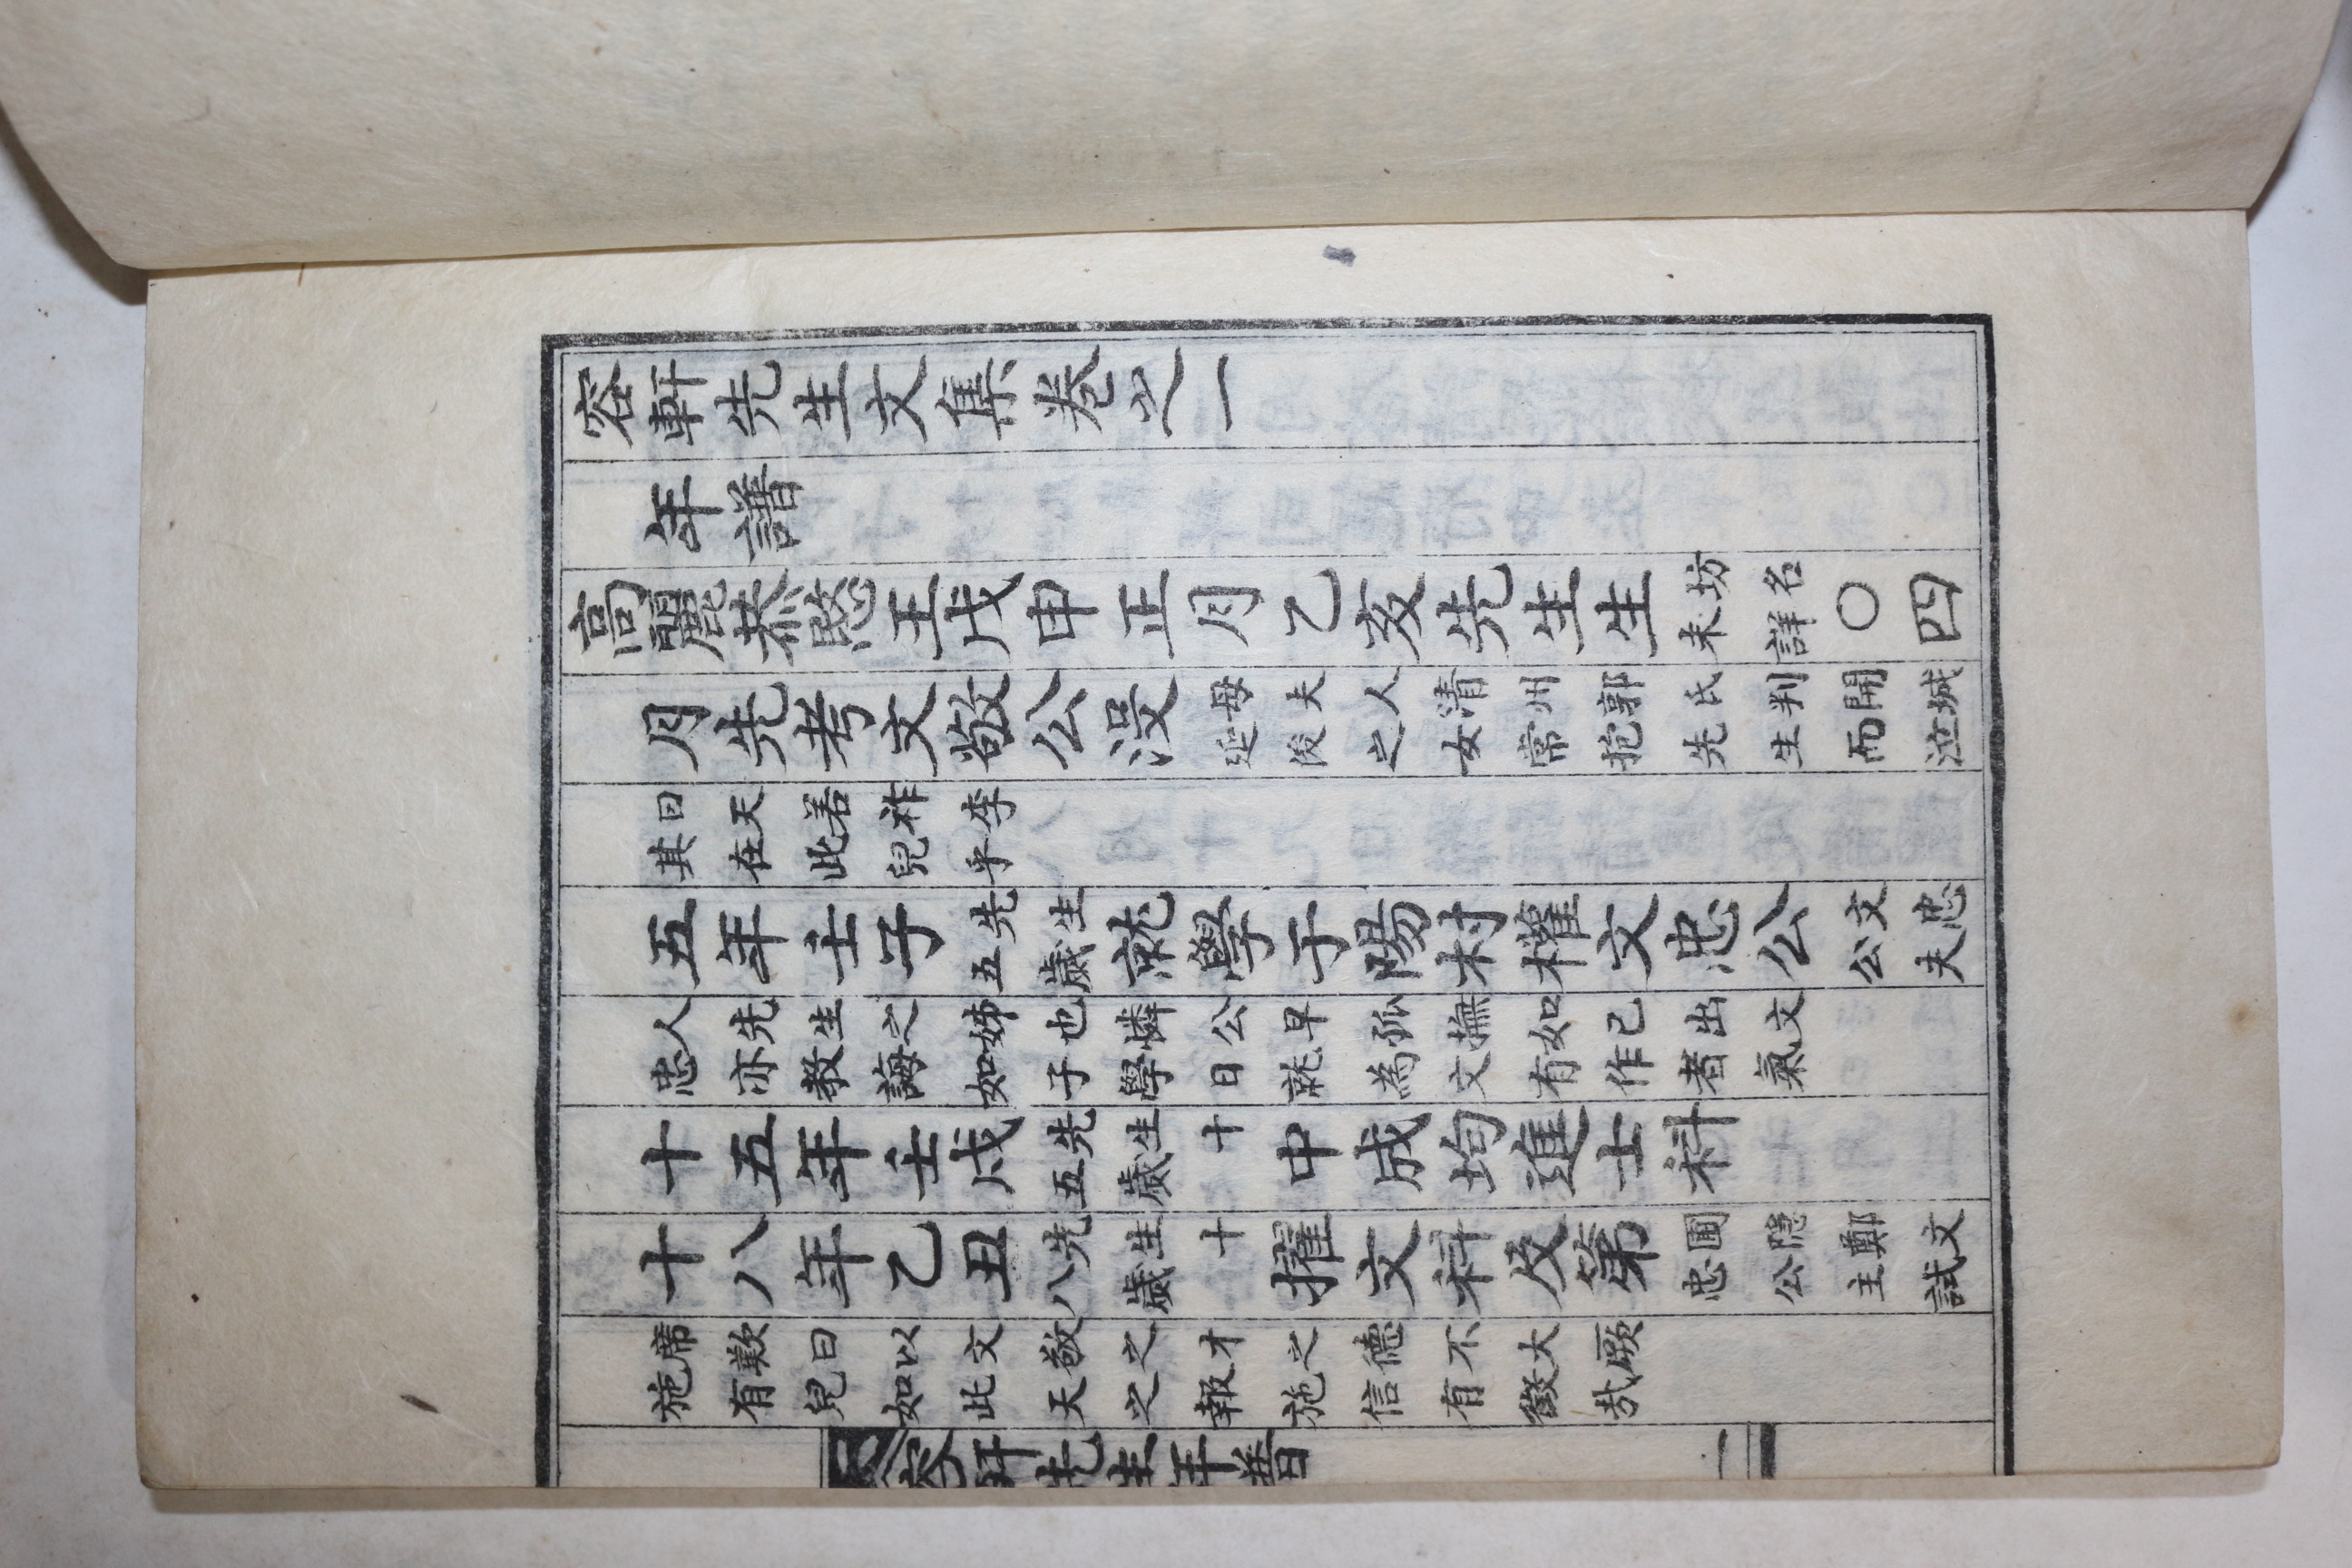 容軒先生文集卷之一
年譜
高麗恭愍王戊申正月乙亥先生生坊名未詳〇四
月先考文敬公沒母夫人清州郭氏判開城延俊之女常抱先生而泣
曰天若祚李其在此兒乎
五年壬子先生五歲就學于陽村權文忠公文忠公夫
人先生之姊也憐公早孤撫如己出文忠亦教誨如子學日就為文有作者氣
十五年壬戌先生十五歲中成均進士科
十八年乙丑先生十八歲擢文科及第圃隱鄭文忠公主試
席歎曰以文敬之才之德不大厥施有兒如此天之報施信有徵哉
容軒先生年譜
一